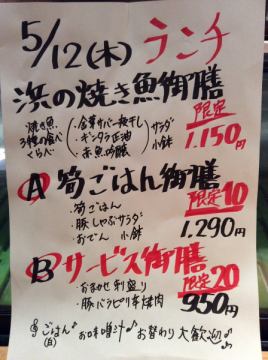 5/12(木) ランチ
浜の焼き魚御膳
焼き魚 3種の食べくらべ
・金華サバ一夜干し
・ギンダラ正油
・赤魚吟醸
サラダ 小鉢
限定
1,150円
A 筍ごはん御膳
限定10
・筍ごはん
・豚しゃぶサラダ
・おでん 小鉢
1,290円
B サービス御膳
限定20
・おまかせ刺盛り
・豚バラピリ辛焼肉
950円
ごはん(白) お味噌汁 お替わり大歓迎